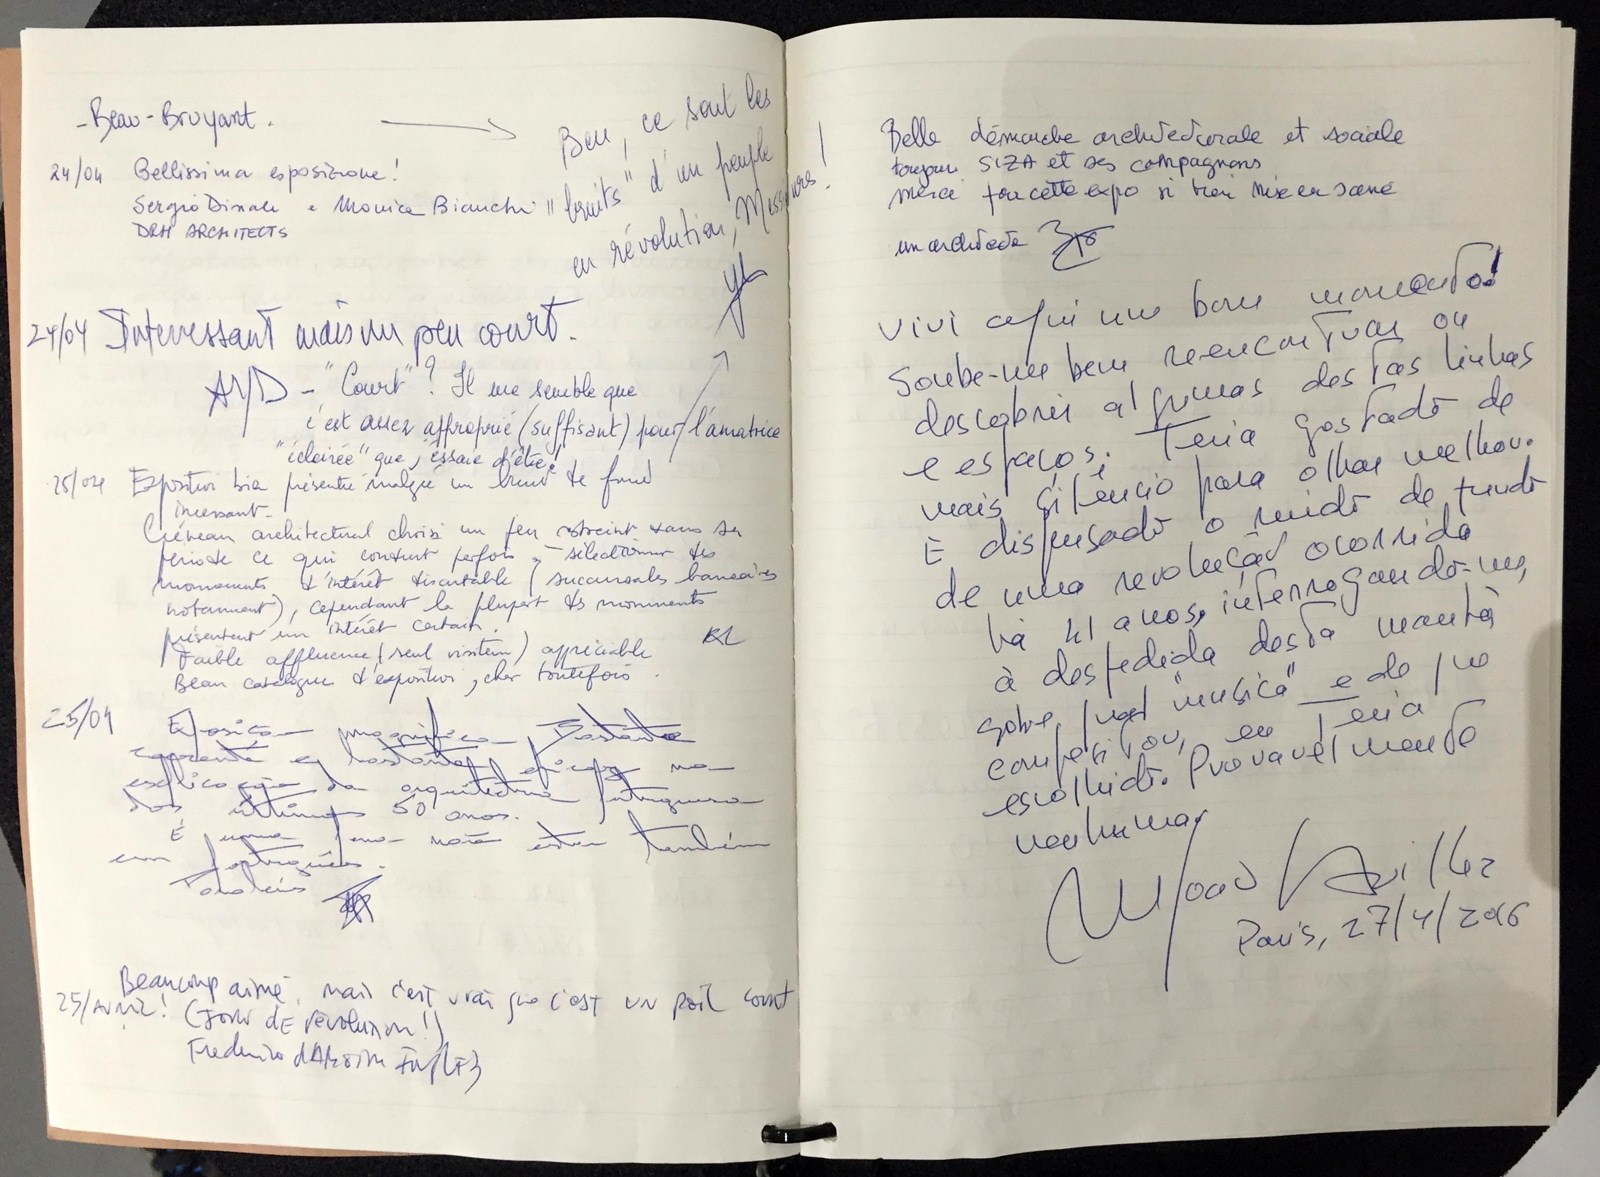 - Beau - Bruyant.
Ben, ce sont les
"bruits" d'un peuple
en révolution, Messieurs!
24/04 Bellissima esposizione!
Sergio e Monica Bianchi
DRH ARCHITECTS
24/04 Interessant mais un peu court.
AYD - "Court"? Il me semble que
c'est assez approprié (suffisant) pour l'amatrice
"éclairée" que j'essaie d'être!
25/04 Exposition bien présentée malgré un bruit de fond
incessant.
Créneau architectural choisi un peu restreint dans sa
période ce qui conduit parfois à sélectionner des
monuments d'intérêt discutable (succursales bancaires
notamment), cependant la plupart des monuments
présentent un intérêt certain.
Faible affluence (seul visiteur) appréciable
Beau catalogue d'exposition, cher toutefois.
25/04 Exposição magnífica. Bastante
coerente e bastante eficaz na
explicação da arquitectura portuguesa
dos últimos 50 anos.
É uma pena não estar também
em português.
25/Avril! Beaucoup aimé, mais c'est vrai que c'est un poil court
(Jour de révolution!)
Belle démarche architecturale et sociale
toujours SIZA et ses compagnons
merci pour cette expo si bien mise en scène
un architecte
Vivi aqui um bom momento!
Soube-me bem reencontrar ou
descobrir algumas destas linhas
e espaços. Teria gostado de
mais silêncio para olhar melhor.
E dispensado o ruído de fundo
de uma revolução ocorrida
há 41 anos, interrogando-me,
à despedida desta manhã
sobre qual "música" e de que
compositor, eu teria
escolhido. Provavelmente
nenhuma.
Avillez
Paris, 27/4/2016